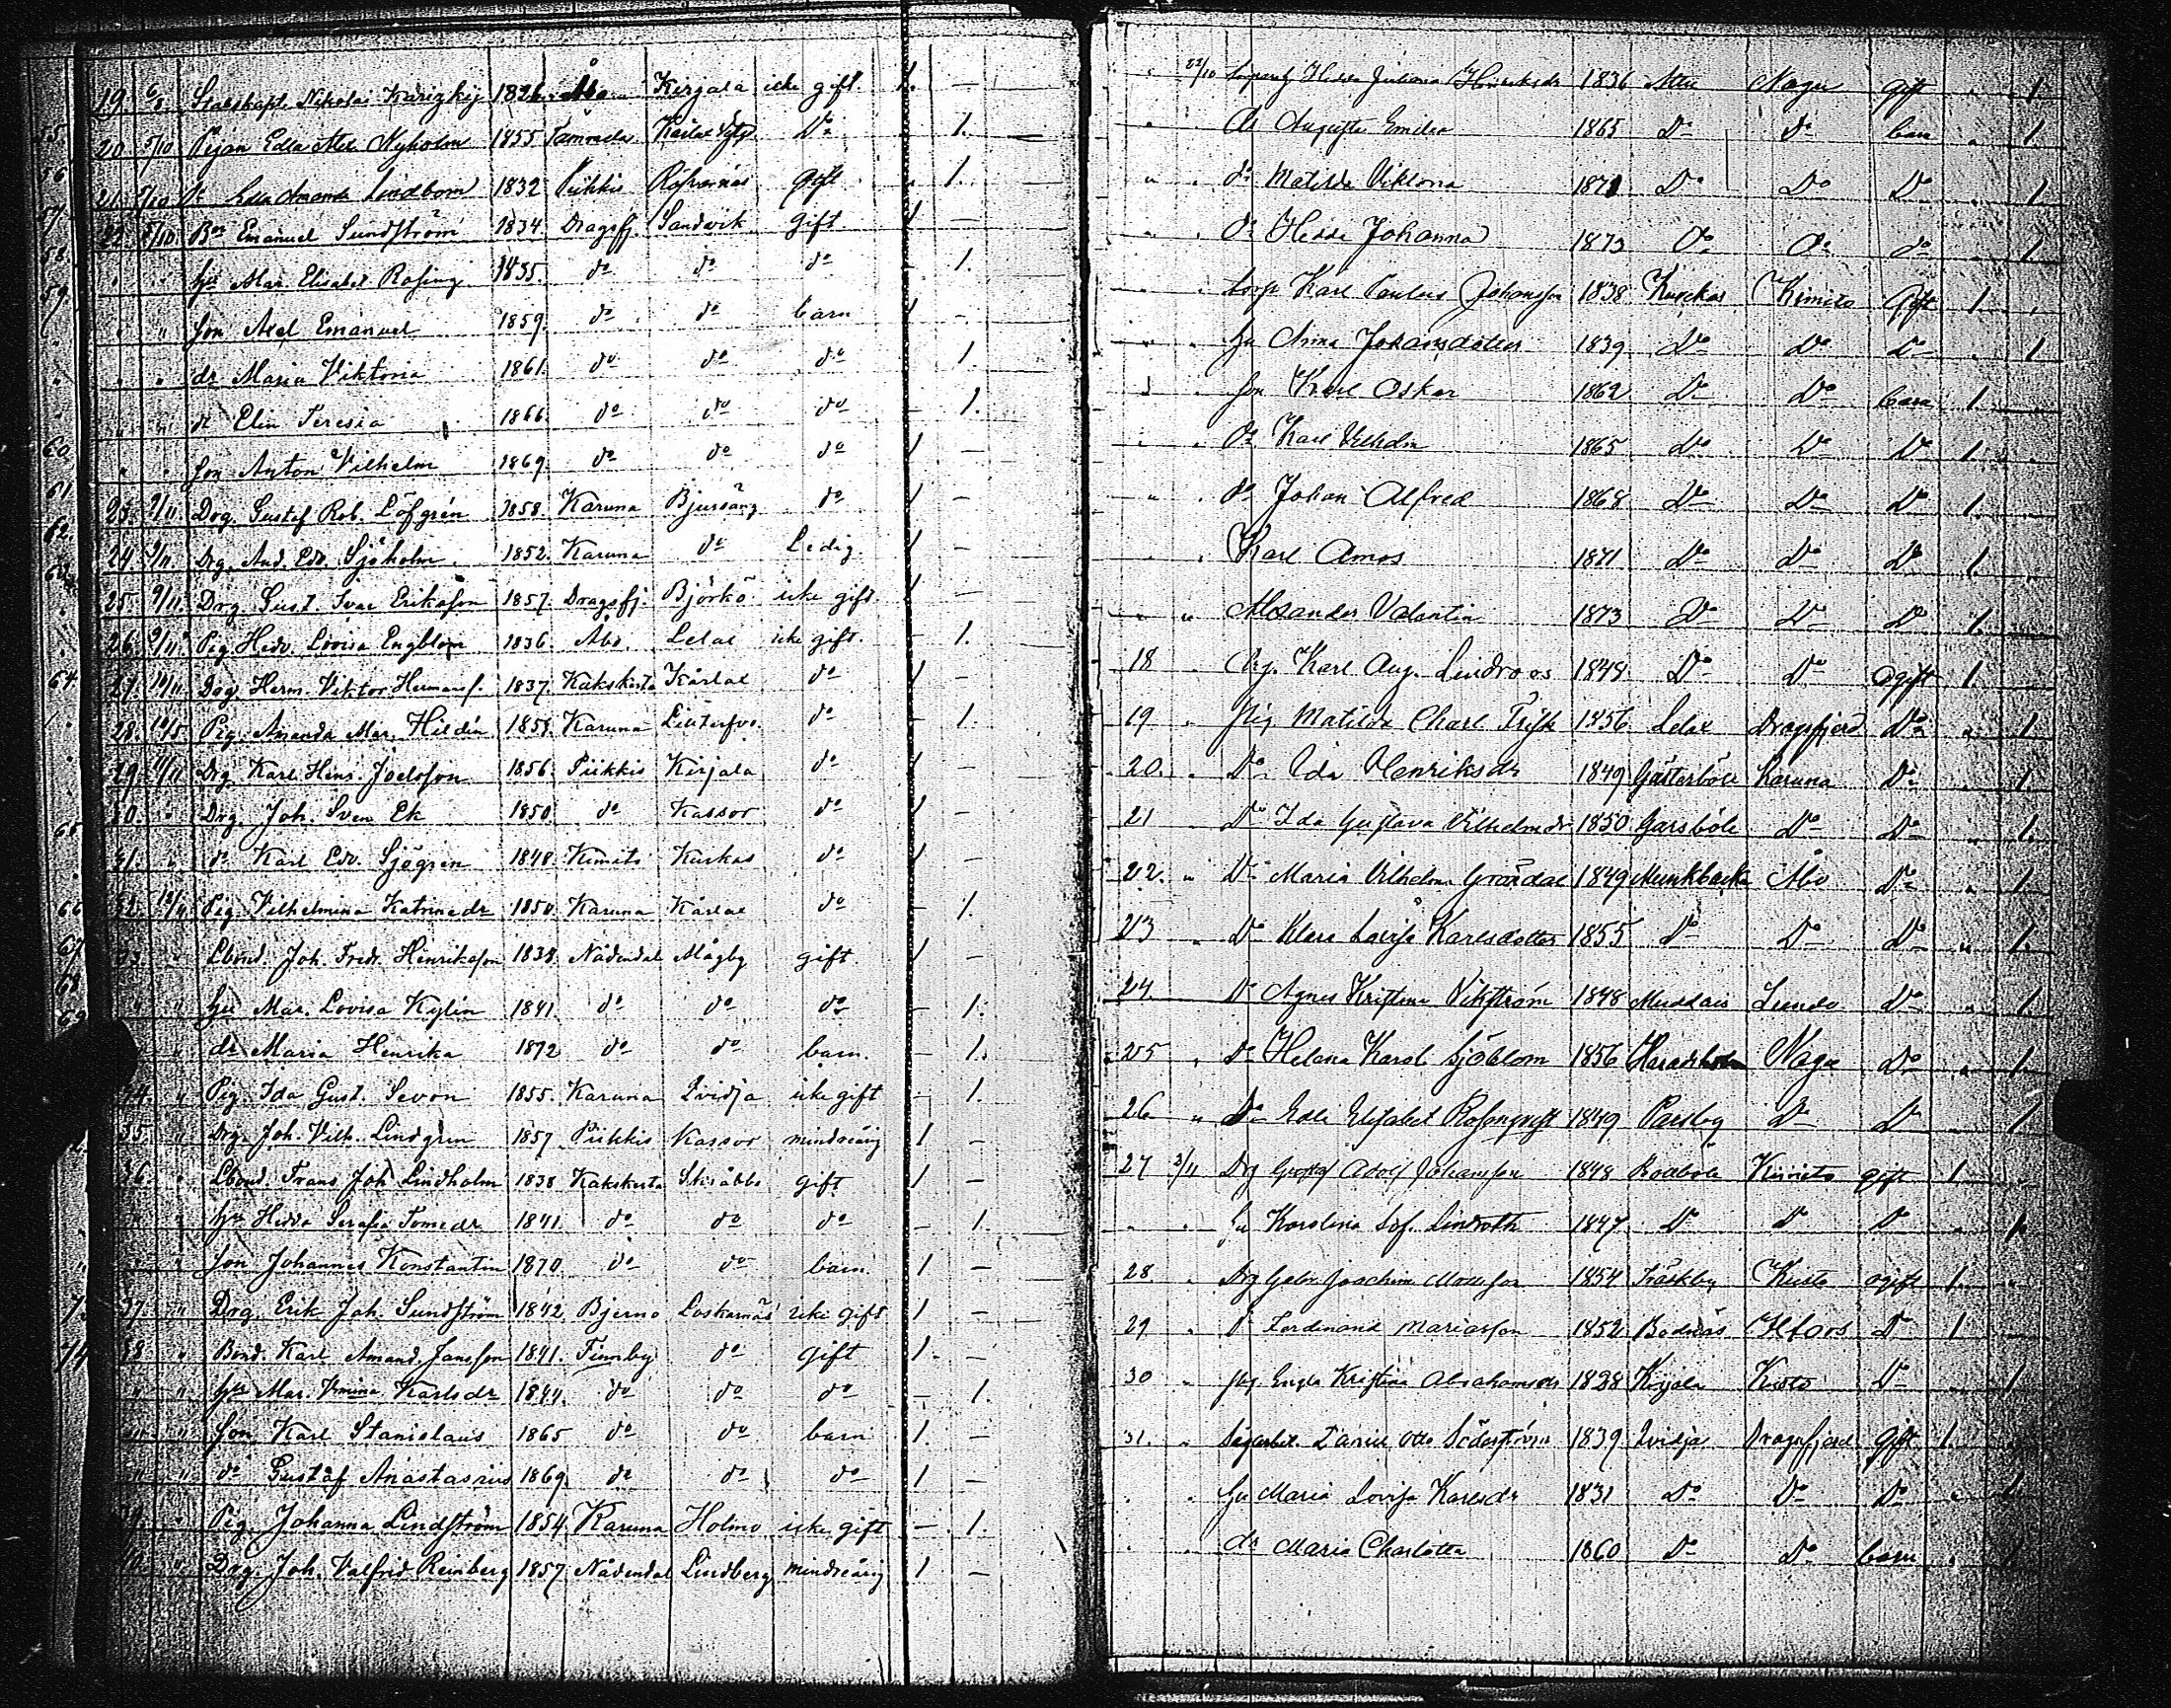 19. 6/8 Stabskapt. Nikolai Karizkij 1826 Åbo Kirjala icke gift. 1. —
20 5/10 Pejan Edla Nyholm 1855 Do — 1.
21 5/10 Do Edla Amanda Lindbom 1832 Piikkis Rofvarnäs gift — 1.
22 5/10 Emanuel Sundström 1834 Dragsfj. Sandvik gift. 1 —
" " hu Mar. Elisabet Rosing 1835. do do do — 1.
" " son Axel Emanuel 1859. do do barn 1 —
" " dr Maria Viktoria 1861. do do do — 1.
" " dr Elin Teresia 1866. do do do — 1.
" " son Anton Vilhelm 1869. do do do 1 —
23. 9/11 Drg. Gustaf Rob. Löfgrén 1858. Karuna Bjursäng do 1 —
24. 9/11. Drg. And. Edv. Sjöholm. 1852. Karuna do Ledig. 1 —
25. 9/11. Drg. Gust. Ivar Eriksson 1857. Dragsfj. Björkö icke gift 1 —
26. 9/11. Pig. Hedv. Lovisa Engblom 1836. Åbo. Lelax icke gift. — 1.
27. 10/11. Drg. Herm. Viktor Hermansf. 1837. Kakskerta Kärlax do 1 —
28. 10/5 Pig. Amanda Mar. Hildén 1858. Karuna do — 1.
29. 11/11 Drg. Karl Hins. Joelsson 1856. Piikkis Kirjala do 1 —
30. " Drg. Joh. Sven Ek 1850. do Kassor do 1 —
31. " do Karl Edv. Sjögren 1848. Kimito Kirkas do 1 —
32. 12/11 Pig. Vilhelmina Katrinadr 1850. Karuna Kärlax do — 1.
33. " Lbond. Joh. Fredr. Henriksson 1838. Nådendal Mågby gift. 1 —
" " hu Mar. Lovisa Kylin 1841. do do do — 1.
" " dr Maria Henrika 1872 do do barn. — 1.
34. " Pig. Ida Gust. Sevon 1855. Karuna Qvidja icke gift — 1.
35. " Drg. Joh. Vilh. Lindgren 1857. Piikkis Kassor mindreårig 1 —
36. " Lbond. Frans Joh. Lindholm 1838 Kakskerta Skräbbo gift 1 —
" " hu Hedda Serafia Tomedr 1841. do do do — 1.
" " son Johannes Konstantin 1870. do do barn. 1 —
37. " Drg. Erik Joh. Sundström 1842. Bjerno Loskarnäs icke gift 1 —
38. " Bond. Karl Amand. Jansson 1841. Finnby do gift 1. —
" " hu Mar. Vmina Karlsdr 1844. do do do — 1.
" " son Karl Stanislaus 1865 do do barn 1. —
" " do Gustaf Anastasius 1869. do do do 1 —
39. " Pig. Johanna Lindström 1854. Karuna Holmo icke gift — 1.
40. " Drg. Joh. Valfrid Reinberg 1857 Nådendal Lindberg mindreårig 1 —
" 22/10 Hedda Juliana Henriksdr 1836 Attu Nagu gift " 1
" dr Augusta Emilia 1865 Do do barn " 1.
" " do Matilda Viktoria 1871 Do Do Do " 1
" " do Hedda Johanna 1873 Do Do do " 1
" " torp Karl Paulus Johansson 1838 Kimito Gift 1. "
" " hu Anna Johansdotter 1839 Do do Do " 1
" " son Karl Oskar 1862 Do Do barn 1. "
" " do Karl Vilhelm 1865 Do Do Do 1. "
" " do Johan Alfred 1868 Do Do Do 1. "
" " Karl Amos 1871 Do Do Do 1.
" " Alexander Valentin 1873 Do Do Do 1.
18 " Drg. Karl Aug. Lindroos 1848. Do Do ogift 1
19 " Pig. Matilda Charl. Frisk 1856 Lelax Dragsfjerd Do " 1
20. " Do Ida Henriksdr 1849 Gästerböle Karuna Do " 1
21 " Do Ida Gustava Vilhelmsdr 1850 Garsböle Do Do " 1.
22. " Do Maria Vilhelm. Gröndal 1849 Munkbacka Åbo Do " 1.
23 " Do Klara Lovisa Karlsdotter 1855 Do Do Do " 1.
24. " Do Agnes Kristina Vikström 1848 Muddais Lundo Do " 1
25 " Do Helena Karol. Sjöblom 1856 Haradsholm Nagu Do " 1.
26 " Do Edla Elisabet Rosenqvist 1849 Parsby Do Do " 1
27 3/11 Drg Gustaf Adolf Johansson 1848 Rodbole Kimito gift 1. "
" " hu Karolina Sof. Lindroth 1847. Do Do Do " 1
28. " Drg Joachim 1854 Träskby Kusto ogift 1. "
29 " Do Ferdinand Mariasson 1852. Bodnäs Do 1.
30 " Pig Engla Kristina Abrahamsdr 1828 Kirjala Kusto Do " 1
31. " Sågarbet. Daniel Otto Söderström 1839 Qvidja Dragsfjerd gift 1.
" " hu Maria Lovisa Karlsdr 1831 Do Do Do " 1
" " dr Maria Charlotta 1860 Do Do barn " 1